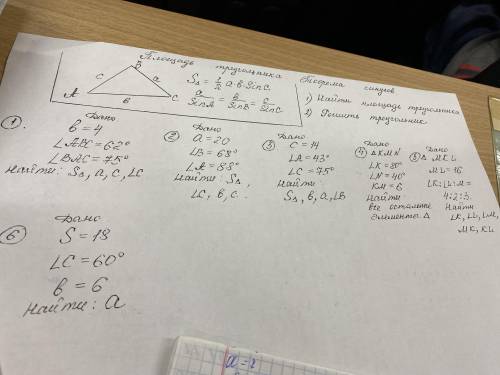 Площадь треугольника
Теорема синусов
B
c
a
A
C
в
S△ = 1/2 a·в·SinC
a/SinA = в/SinB = c/SinC
1) Найти площадь треугольника
2) Решить треугольник
1.
Дано
в = 4
∠ABC = 62°
∠BAC = 75°
Найти: S△, a, c, ∠C
2
Дано
a = 20
∠B = 68°
∠A = 88°
Найти: S△,
∠C, в, c.
3
Дано
C = 14
∠A = 43°
∠C = 75°
Найти:
S△, в, a, ∠B
4
Дано
△ KMN
∠K = 80°
∠N = 40°
KM = 6
Найти
все остальные
элементы △
5
Дано
△ MKL
ML = 16
∠K:∠L:∠M =
4:2:3.
Найти
∠K, ∠L, ∠M,
MK, KL
6
Дано
S = 18
∠C = 60°
в = 6
Найти: a